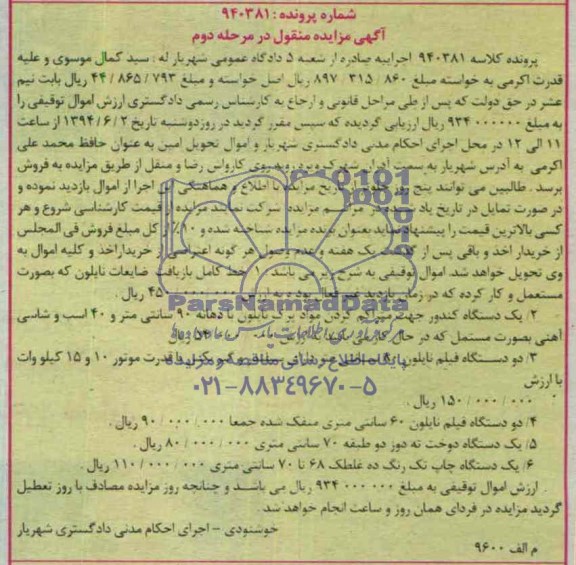 شماره پرونده : ۹۴۰۳۸۱
آگهی مزایده منقول در مرحله دوم
پرونده کلاسه ۹۴۰۳۸۱ اجراییه صادره از شعبه ۵ دادگاه عمومی شهریار له : سید کمال موسوی و علیه
قدرت اکرمی به خواسته مبلغ ۸۶۰ / ۳۱۵ / ۸۹۷ ریال اصل خواسته و مبلغ ۷۹۳ / ۸۶۵ / ۴۴ ریال بابت نیم
عشر در حق دولت که پس از طی مراحل قانونی و ارجاع به کارشناس رسمی دادگستری ارزش اموال توقیفی را
به مبلغ ۹۳۴۰۰۰۰۰۰ ریال ارزیابی گردیده که سپس مقرر گردید در روزدوشنبه تاریخ ۲ / ۶ / ۱۳۹۴ از ساعت
۱۱ الی ۱۲ در محل اجرای احکام مدنی دادگستری شهریار و اموال تحویل امین به عنوان حافظ محمد علی
اکرمی به آدرس شهریار به سمت آدران شهرک روبروی کارواش رضا و منقل از طریق مزایده به فروش
برسد . طالبین می توانند پنج روز جلوتر از تاریخ مزایده با اطلاع و هماهنگی این اجرا از اموال بازدید نموده و
در صورت تمایل در تاریخ یاد شده در مراسم مزایده شرکت نمایند مزایده از قیمت کارشناسی شروع و هر
کسی بالاترین قیمت را پیشنهاد نماید بعنوان برنده مزایده شناخته شده و ۱۰٪ از کل مبلغ فروش فی المجلس
از خریدار اخذ و باقی پس از گذشت یک هفته و عدم وصول هر گونه اعتراضی از خریداراخذ و کلیه اموال به
وی تحویل خواهد شد. اموال توقیفی به شرح زیر می باشد ۱/ خط کامل بازیافت ضایعات نایلون که بصورت
مستعمل و کار کرده که در زمان بازدید غیر فعال بوده به ارزش ۴۵۰ ریال .
۲/ یک دستگاه کندور جهت کردن مواد پرک نایلون با دهانه ۹۰ سانتی متر و ۴۰ اسب و شاسی
آهنی بصورت مستمل که در حال ریال
۳/ دو دستگاه فیلم نایلون ۸۰ سانتی متر قدرت موتور ۱۰ و ۱۵ کیلو وات
با ارزش
۰۰۰ / ۰۰۰ / ۱۵۰ ریال .
۴/ دو دستگاه فیلم نایلون ۶۰ سانتی متری منفک شده جمعا ۰۰۰ / ۰۰۰ / ۹۰ ریال .
۵/ یک دستگاه دوخت ته دوز دو طبقه ۷۰ سانتی متری ۰۰۰ / ۰۰۰ / ۸۰ ریال .
۶/ یک دستگاه چاپ تک رنگ ده غلطک ۶۸ تا ۷۰ سانتی متری ۰۰۰ / ۰۰۰ / ۱۱۰ ریال .
ارزش اموال توقیفی به مبلغ ۰۰۰ ۰۰۰ ۹۳۴ ریال می باشد و چنانچه روز مزایده مصادف با روز تعطیل
گردید مزایده در فردای همان روز و ساعت انجام خواهد شد .
خوشنودی - اجرای احکام مدنی دادگستری شهریار
م الف ۹۶۰۰
ParsNamadData
پایگاه اطلاع رسانی مناقصه و مزایده
۰۲۱-۸۸۳۴۹۶۷۰-۵